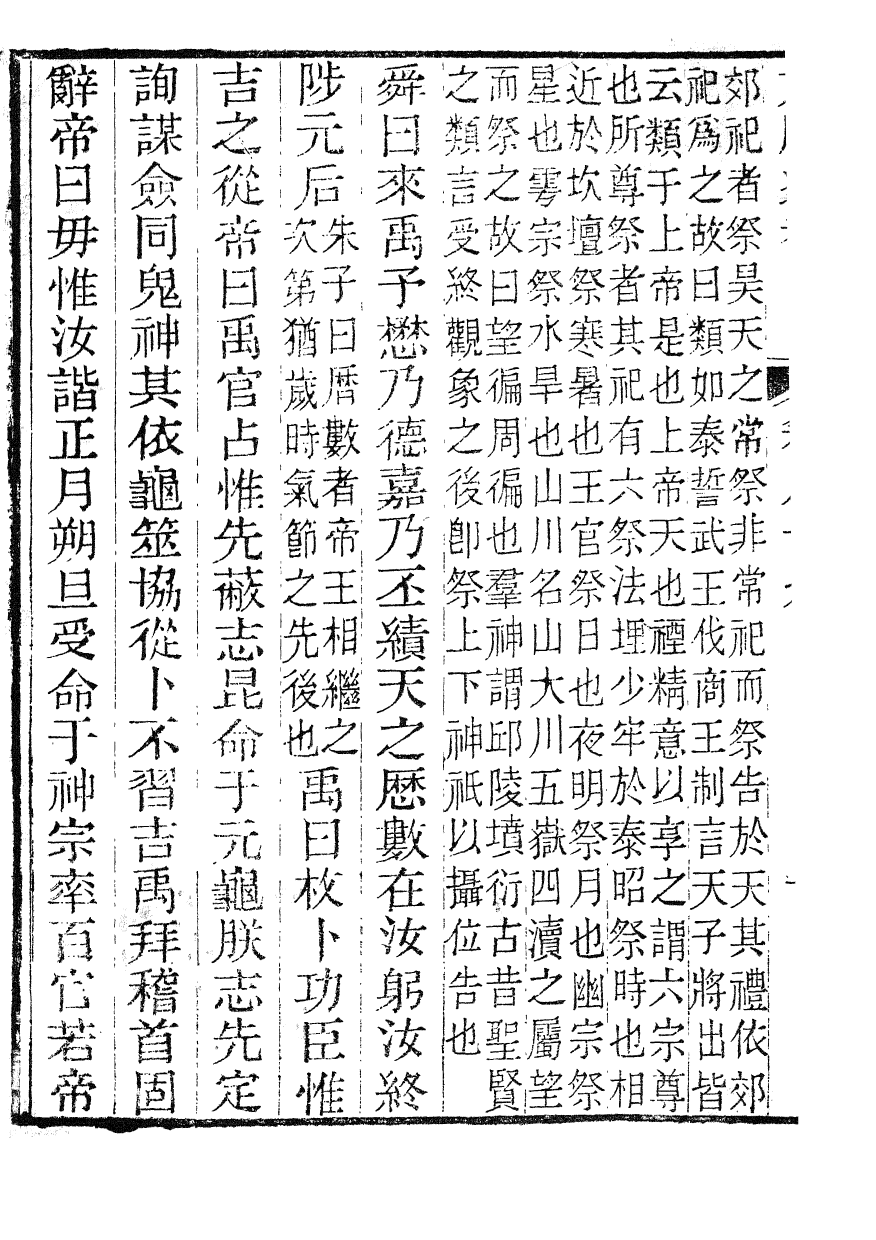 郊祀者祭昊天之常祭非常祀而祭告於天其禮依郊
祀爲之故曰類如泰誓武王伐商王制言天子將出皆
云類于上帝是也上帝天也禋精意以享之謂六宗尊
也所尊祭者其祀有六祭法埋少牢於泰昭祭時也相
近於坎壇祭寒暑也王宮祭日也夜明祭月也幽宗祭
星也雩宗祭水旱也山川名山大川五嶽四瀆之屬望
而祭之故曰望徧周徧也羣神謂邱陵墳衍古昔聖賢
之類言受終觀象之後卽祭上下神祇以攝位告也
舜曰來禹予懋乃德嘉乃丕績天之厯數在汝躬汝終
陟元后
朱子曰厯數者帝王相繼之
次第猶歲時氣節之先後也
禹曰枚卜功臣惟
吉之從帝曰禹官占惟先蔽志昆命于元龜朕志先定
詢謀僉同鬼神其依龜筮協從卜不習吉禹拜稽首固
辭帝曰毋惟汝諧正月朔旦受命于神宗率百官若帝